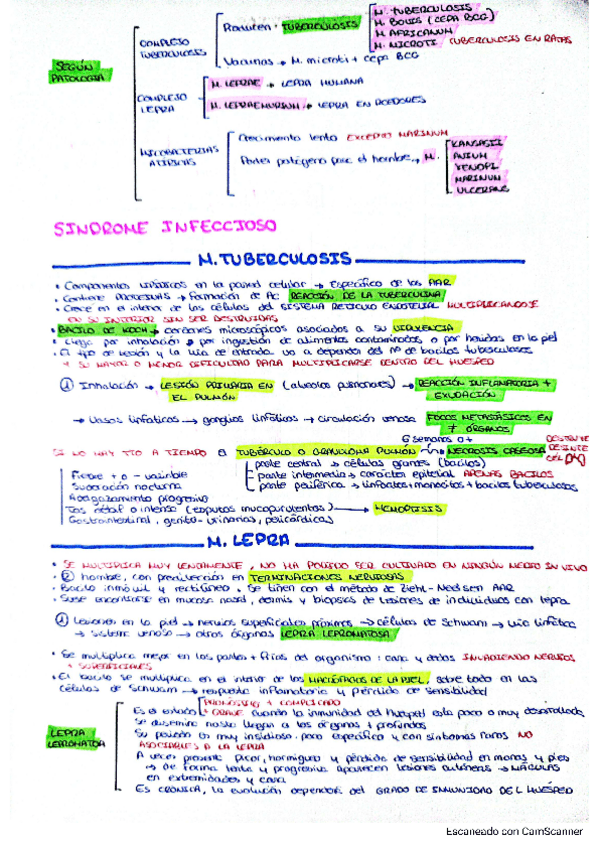 SEGÚN PATOLOGIA
COMPLEJO TUBERCULOSIS
Producen TUBERCULOSIS
M. TUBERCULOSIS
M. BOVIS (CEPA BCG)
M. AFRICANUM
M. MICROTI TUBERCULOSIS EN RATAS
Vacunas → M. microti + cepa BCG
COMPLEJO LEPRA
M. LEPRAE → LEPRA HUMANA
M. LEPRAEMURIUM → LEPRA EN ROEDORES
MICOBACTERIAS ATIPICAS
Crecimiento lento EXCEPTO MARINUM
Poder patógeno para el hombre → M.
KANSASII
AVIUM
XENOPI
MARINUM
ULCERANS
SINDROME INFECCIOSO
M. TUBERCULOSIS
• Componentes lipídicos en la pared celular → Específico de los AAR
• Contiene PROTEINAS → Formación de Ac REACCIÓN DE LA TUBERCULINA
• Crece en el interior de las células del SISTEMA RETICULO ENDOTELIAL MULTIPLICANDOSE
EN SU INTERIOR SIN SER DESTRUIDAS
• BACILO DE KOCH → cordones microscópicos asociados a su VIRULENCIA
• Llega por inhalación → por ingestión de alimentos contaminados o por heridas en la piel
• El tipo de lesión y la vía de entrada va a depender del nº de bacilos tuberculosos
+ SU MAYOR O MENOR DIFICULTAD PARA MULTIPLICARSE DENTRO DEL HUESPED
① Inhalación → LESIÓN PRIMARIA EN EL PULMÓN (alveolos pulmonares) → REACCIÓN INFLAMATORIA + EXUDACIÓN
→ Vasos linfaticos → ganglios linfáticos → circulación venosa FOCOS METASTÁSICOS EN ≠ ORGANOS
SI NO HAY TTO A TIEMPO TUBÉRCULO O GRANULOMA PULMÓN 6 semanas NECROSIS CASEOSA
parte central → células gigantes (bacilos)
parte intermedia → carácter epitelial APENAS BACILOS
parte periférica → linfocitos + monocitos + bacilos tuberculosos
Fiebre + o - variable
Sudoración nocturna
Adelgazamiento progresivo
Tos débil o intensa (esputos mucopurulentos) → HEMOPTISIS
Gastrointestinal, genito-urinarias, pericárdicas
M. LEPRA
• SE MULTIPLICA MUY LENTAMENTE, NO HA PODIDO SER CULTIVADO EN NINGÚN MEDIO IN VIVO
• hombre, con predilección en TERMINACIONES NERVIOSAS
• Bacilo inmóvil y rectilíneo, se tiñen con el método de Ziehl-Neelsen AAR
• Suele encontrarse en mucosa nasal, dermis y biopsias de lesiones de individuos con lepra
① Lesiones en la piel → nervios superficiales próximos → células de Schwann → vía linfática
→ sistema venoso → otros órganos LEPRA LEPROMATOSA
• Se multiplica mejor en las partes + frías del organismo: cara y dedos INVADIENDO NERVIOS
+ SUPERFICIALES
• El bacilo se multiplica en el interior de los MACRÓFAGOS DE LA PIEL, sobre todo en las
células de Schwann → respuesta inflamatoria y pérdida de sensibilidad
LEPRA LEPROMATOSA
+ COMPLICADO
Es el estado + GRAVE cuando la inmunidad del huésped esta poco o muy desarrollada
Se disemina hasta llegar a los órganos + profundos
Su periodo es muy insidioso: poco específico y con síntomas raros NO
ASOCIABLES A LA LEPRA
A veces presenta picor, hormigueo y pérdida de sensibilidad en manos y pies
→ De forma lenta y progresiva aparecen lesiones cutáneas → MÁCULAS
en extremidades y cara
Es CRÓNICA, la evolución dependerá del GRADO DE INMUNIDAD DEL HUÉSPED
Escaneado con CamScanner